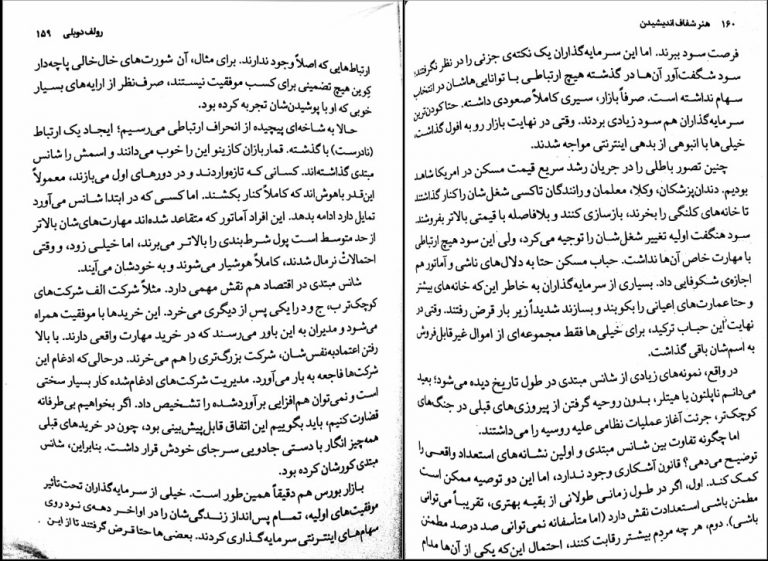 رولف دوبلی ۱۵۹
ارتباط‌هایی که اصلاً وجود ندارند. برای مثال، آن شورت‌های خال‌خالی پاچه‌دار
کوین هیچ تضمینی برای کسب موفقیت نیستند، صرف‌نظر از ارایه‌های بسیار
خوبی که او با پوشیدن‌شان تجربه کرده بود.
حالا به شاخه‌ای پیچیده از انحراف ارتباطی می‌رسیم؛ ایجاد یک ارتباط
(نادرست) با گذشته. قماربازان کازینو این را خوب می‌دانند و اسمش را شانس
مبتدی گذاشته‌اند. کسانی که تازه‌واردند و در دورهای اول می‌بازند، معمولاً
این‌قدر باهوش‌اند که کاملاً کنار بکشند. اما کسی که در ابتدا شانس می‌آورد
تمایل دارد ادامه بدهد. این افراد آماتور که متقاعد شده‌اند مهارت‌های‌شان بالاتر
از حد متوسط است پول شرط‌بندی را بالاتر می‌برند، اما خیلی زود، و وقتی
احتمالات نرمال شدند، کاملاً هوشیار می‌شوند و به خودشان می‌آیند.
شانس مبتدی در اقتصاد هم نقش مهمی دارد. مثلاً شرکت الف شرکت‌های
کوچک‌تر ب، ج و د را یکی پس از دیگری می‌خرد. این خریدها با موفقیت همراه
می‌شود و مدیران به این باور می‌رسند که در خرید مهارت واقعی دارند. با بالا
رفتن اعتمادبه‌نفس‌شان، شرکت بزرگ‌تری را هم می‌خرند. درحالی‌که ادغام این
شرکت‌ها فاجعه به بار می‌آورد. مدیریت شرکت‌های ادغام‌شده کار بسیار سختی
است و نمی‌توان هم‌افزایی برآوردشده را تشخیص داد. اگر بخواهیم بی‌طرفانه
قضاوت کنیم، باید بگوییم این اتفاق قابل‌پیش‌بینی بود، چون در خریدهای قبلی
همه‌چیز انگار با دستی جادویی سر جای خودش قرار داشت. بنابراین، شانس
مبتدی کورشان کرده بود.
بازار بورس هم دقیقاً همین‌طور است. خیلی از سرمایه‌گذاران تحت‌تأثیر
موفقیت‌های اولیه، تمام پس‌انداز زندگی‌شان را در اواخر دهه‌ی نود روی
سهام‌های اینترنتی سرمایه‌گذاری کردند. بعضی‌ها حتا قرض گرفتند تا از این
۱۶۰ هنر شفاف اندیشیدن
فرصت سود ببرند. اما این سرمایه‌گذاران یک نکته‌ی جزئی را در نظر نگرفتند:
سود شگفت‌آور آن‌ها در گذشته هیچ ارتباطی با توانایی‌هاشان در انتخاب
سهام نداشته است. صرفاً بازار، سیری کاملاً صعودی داشته. حتا کودن‌ترین
سرمایه‌گذاران هم سود زیادی بردند. وقتی در نهایت بازار رو به افول گذاشت،
خیلی‌ها با انبوهی از بدهی اینترنتی مواجه شدند.
چنین تصور باطلی را در جریان رشد سریع قیمت مسکن در امریکا شاهد
بودیم. دندان‌پزشکان، وکلا، معلمان و رانندگان تاکسی شغل‌شان را کنار گذاشتند
تا خانه‌های کلنگی را بخرند، بازسازی کنند و بلافاصله با قیمتی بالاتر بفروشند.
سود هنگفت اولیه تغییر شغل‌شان را توجیه می‌کرد، ولی این سود هیچ ارتباطی
با مهارت خاص آن‌ها نداشت. حباب مسکن حتا به دلال‌های ناشی و آماتور هم
اجازه‌ی شکوفایی داد. بسیاری از سرمایه‌گذاران به خاطر این‌که خانه‌های بیشتر
و حتا عمارت‌های اعیانی را بکوبند و بسازند شدیداً زیر بار قرض رفتند. وقتی در
نهایت این حباب ترکید، برای خیلی‌ها فقط مجموعه‌ای از اموال غیرقابل‌فروش
به اسم‌شان باقی گذاشت.
در واقع، نمونه‌های زیادی از شانس مبتدی در طول تاریخ دیده می‌شود؛ بعید
می‌دانم ناپلئون یا هیتلر، بدون روحیه گرفتن از پیروزی‌های قبلی در جنگ‌های
کوچک‌تر، جرئت آغاز عملیات نظامی علیه روسیه را می‌داشتند.
اما چگونه تفاوت بین شانس مبتدی و اولین نشانه‌های استعداد واقعی را
توضیح می‌دهی؟ قانون آشکاری وجود ندارد، اما این دو توصیه ممکن است
کمک کند. اول، اگر در طول زمانی طولانی از بقیه بهتری، تقریباً می‌توانی
مطمئن باشی استعدادت نقش دارد (اما متأسفانه نمی‌توانی صد درصد مطمئن
باشی). دوم، هر چه مردم بیشتر رقابت کنند، احتمال این‌که یکی از آن‌ها مدام